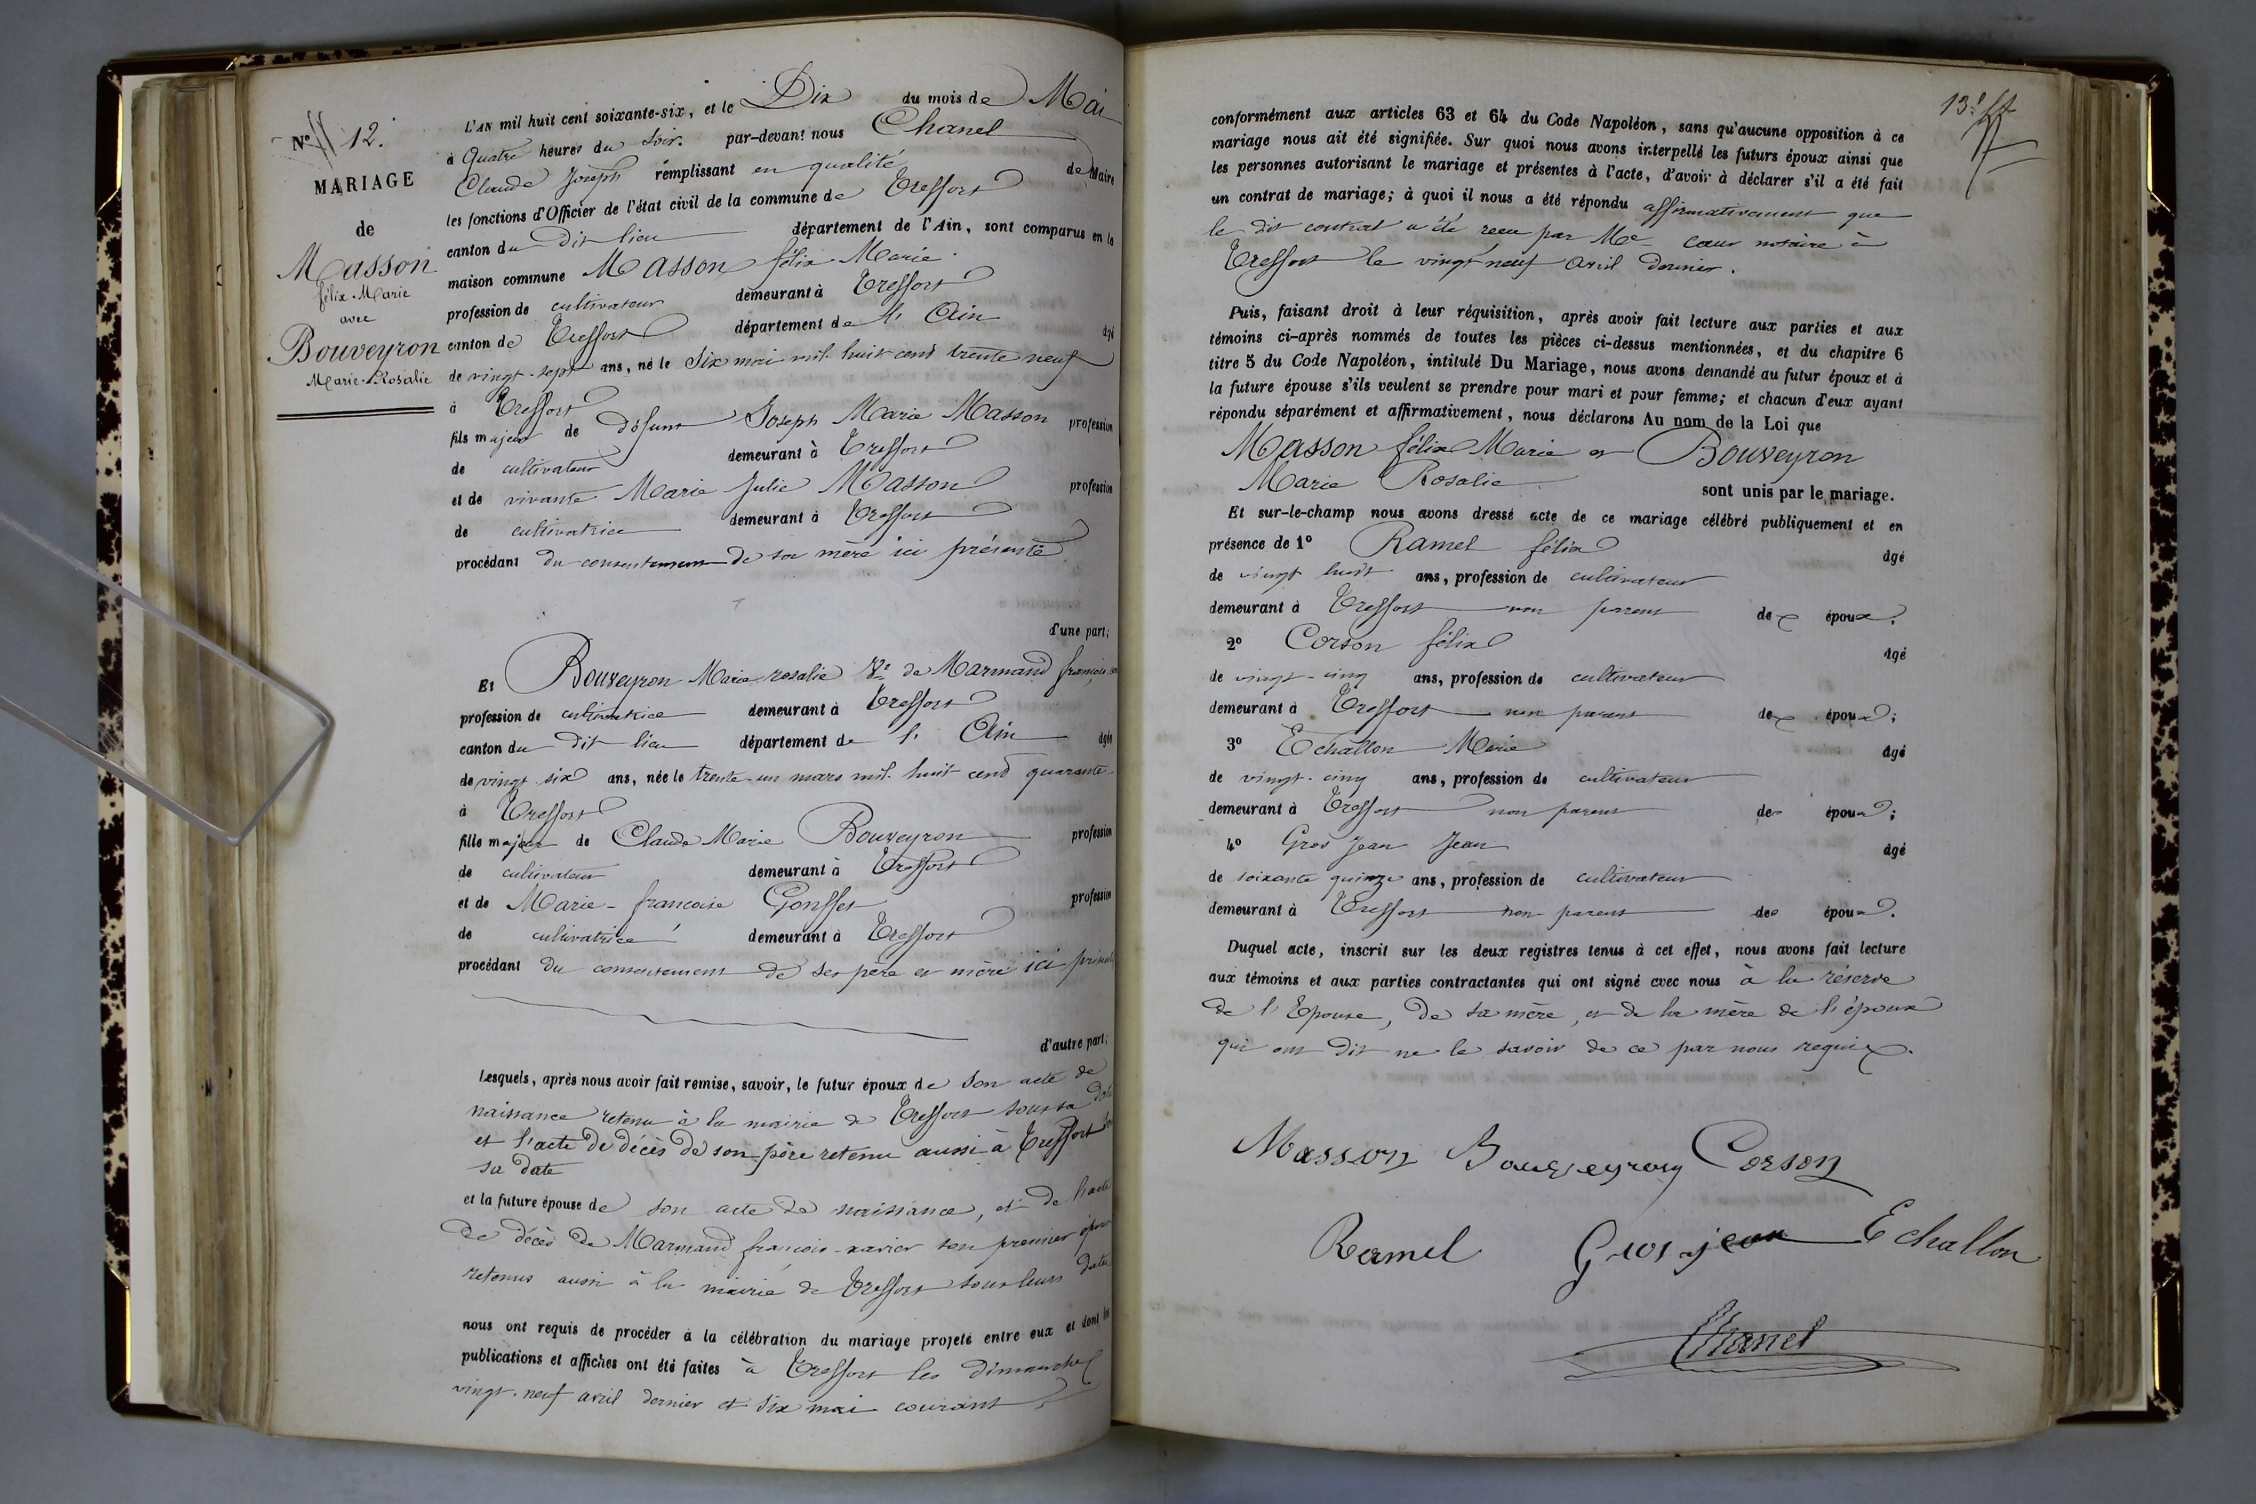 N° 12.
MARIAGE
de
Masson
félix-Marie
avec
Bouveyron
Marie-Rosalie
L'AN mil huit cent soixante-six, et le Dix du mois de Mai
à Quatre heures du Soir. par-devant nous Chanel
Claude Joseph remplissant en qualité de Maire
les fonctions d'Officier de l'état civil de la commune de Treffort
canton du dit lieu département de l'Ain, sont comparus en la
maison commune Masson félix Marie.
profession de cultivateur demeurant à Treffort
canton de Treffort département de l'Ain âgé
de vingt-sept ans, né le Six mai mil huit cent trente neuf
à Treffort
fils majeur de défunt Joseph Marie Masson profession
de cultivateur demeurant à Treffort
et de vivante Marie Julie Masson profession
de cultivatrice demeurant à Treffort
procédant du consentement de sa mère ici présente
d'une part;
Et Bouveyron Marie-rosalie Ve de Marmand françois-
profession de cultivatrice demeurant à Treffort
canton du dit lieu département de l'Ain âgée
de vingt-six ans, née le trente-un mars mil huit cent quarante-
à Treffort
fille majeur de Claude Marie Bouveyron profession
de cultivateur demeurant à Treffort
et de Marie-francoise Gonffet profession
de cultivatrice demeurant à Treffort
procédant du consentement de ses père et mère ici présents
d'autre part;
Lesquels, après nous avoir fait remise, savoir, le futur époux de son acte de
naissance retenu à la mairie de Treffort sous sa date
et l'acte de décès de son père retenu aussi à Treffort sous
sa date
et la future épouse de son acte de naissance, et de l'acte
de décès de Marmand françois-xavier son premier époux
retenus aussi à la mairie de Treffort sous leurs dates
nous ont requis de procéder à la célébration du mariage projeté entre eux et dont les
publications et affiches ont été faites à Treffort les dimanches
vingt-neuf avril dernier et six mai courant,
13.
conformément aux articles 63 et 64 du Code Napoléon, sans qu'aucune opposition à ce
mariage nous ait été signifiée. Sur quoi nous avons interpellé les futurs époux ainsi que
les personnes autorisant le mariage et présentes à l'acte, d'avoir à déclarer s'il a été fait
un contrat de mariage; à quoi il nous a été répondu affirmativement que
le dit contrat a été recu par Me cœur notaire à
Treffort le vingt neuf avril dernier.
Puis, faisant droit à leur réquisition, après avoir fait lecture aux parties et aux
témoins ci-après nommés de toutes les pièces ci-dessus mentionnées, et du chapitre 6
titre 5 du Code Napoléon, intitulé Du Mariage, nous avons demandé au futur époux et à
la future épouse s'ils veulent se prendre pour mari et pour femme; et chacun d'eux ayant
répondu séparément et affirmativement, nous déclarons Au nom de la Loi que
Masson félix Marie et Bouveyron
Marie Rosalie sont unis par le mariage.
Et sur-le-champ nous avons dressé acte de ce mariage célébré publiquement et en
présence de 1° Ramel félix âgé
de vingt huit ans, profession de cultivateur
demeurant à Treffort non parent des époux.
2° Corson félix âgé
de vingt-cinq ans, profession de cultivateur
demeurant à Treffort non parent des époux;
3° Echallon Marie âgé
de vingt-cinq ans, profession de cultivateur
demeurant à Treffort non parent des époux;
4° Gros Jean Jean âgé
de soixante quinze ans, profession de cultivateur
demeurant à Treffort non parent des époux.
Duquel acte, inscrit sur les deux registres tenus à cet effet, nous avons fait lecture
aux témoins et aux parties contractantes qui ont signé avec nous à la réserve
de l'Epouse, de sa mère, et de la mère de l'époux
qui ont dit ne le savoir de ce par nous requis.
Masson Bouveyron Corson
Ramel Grosjean Echallon
Chanel